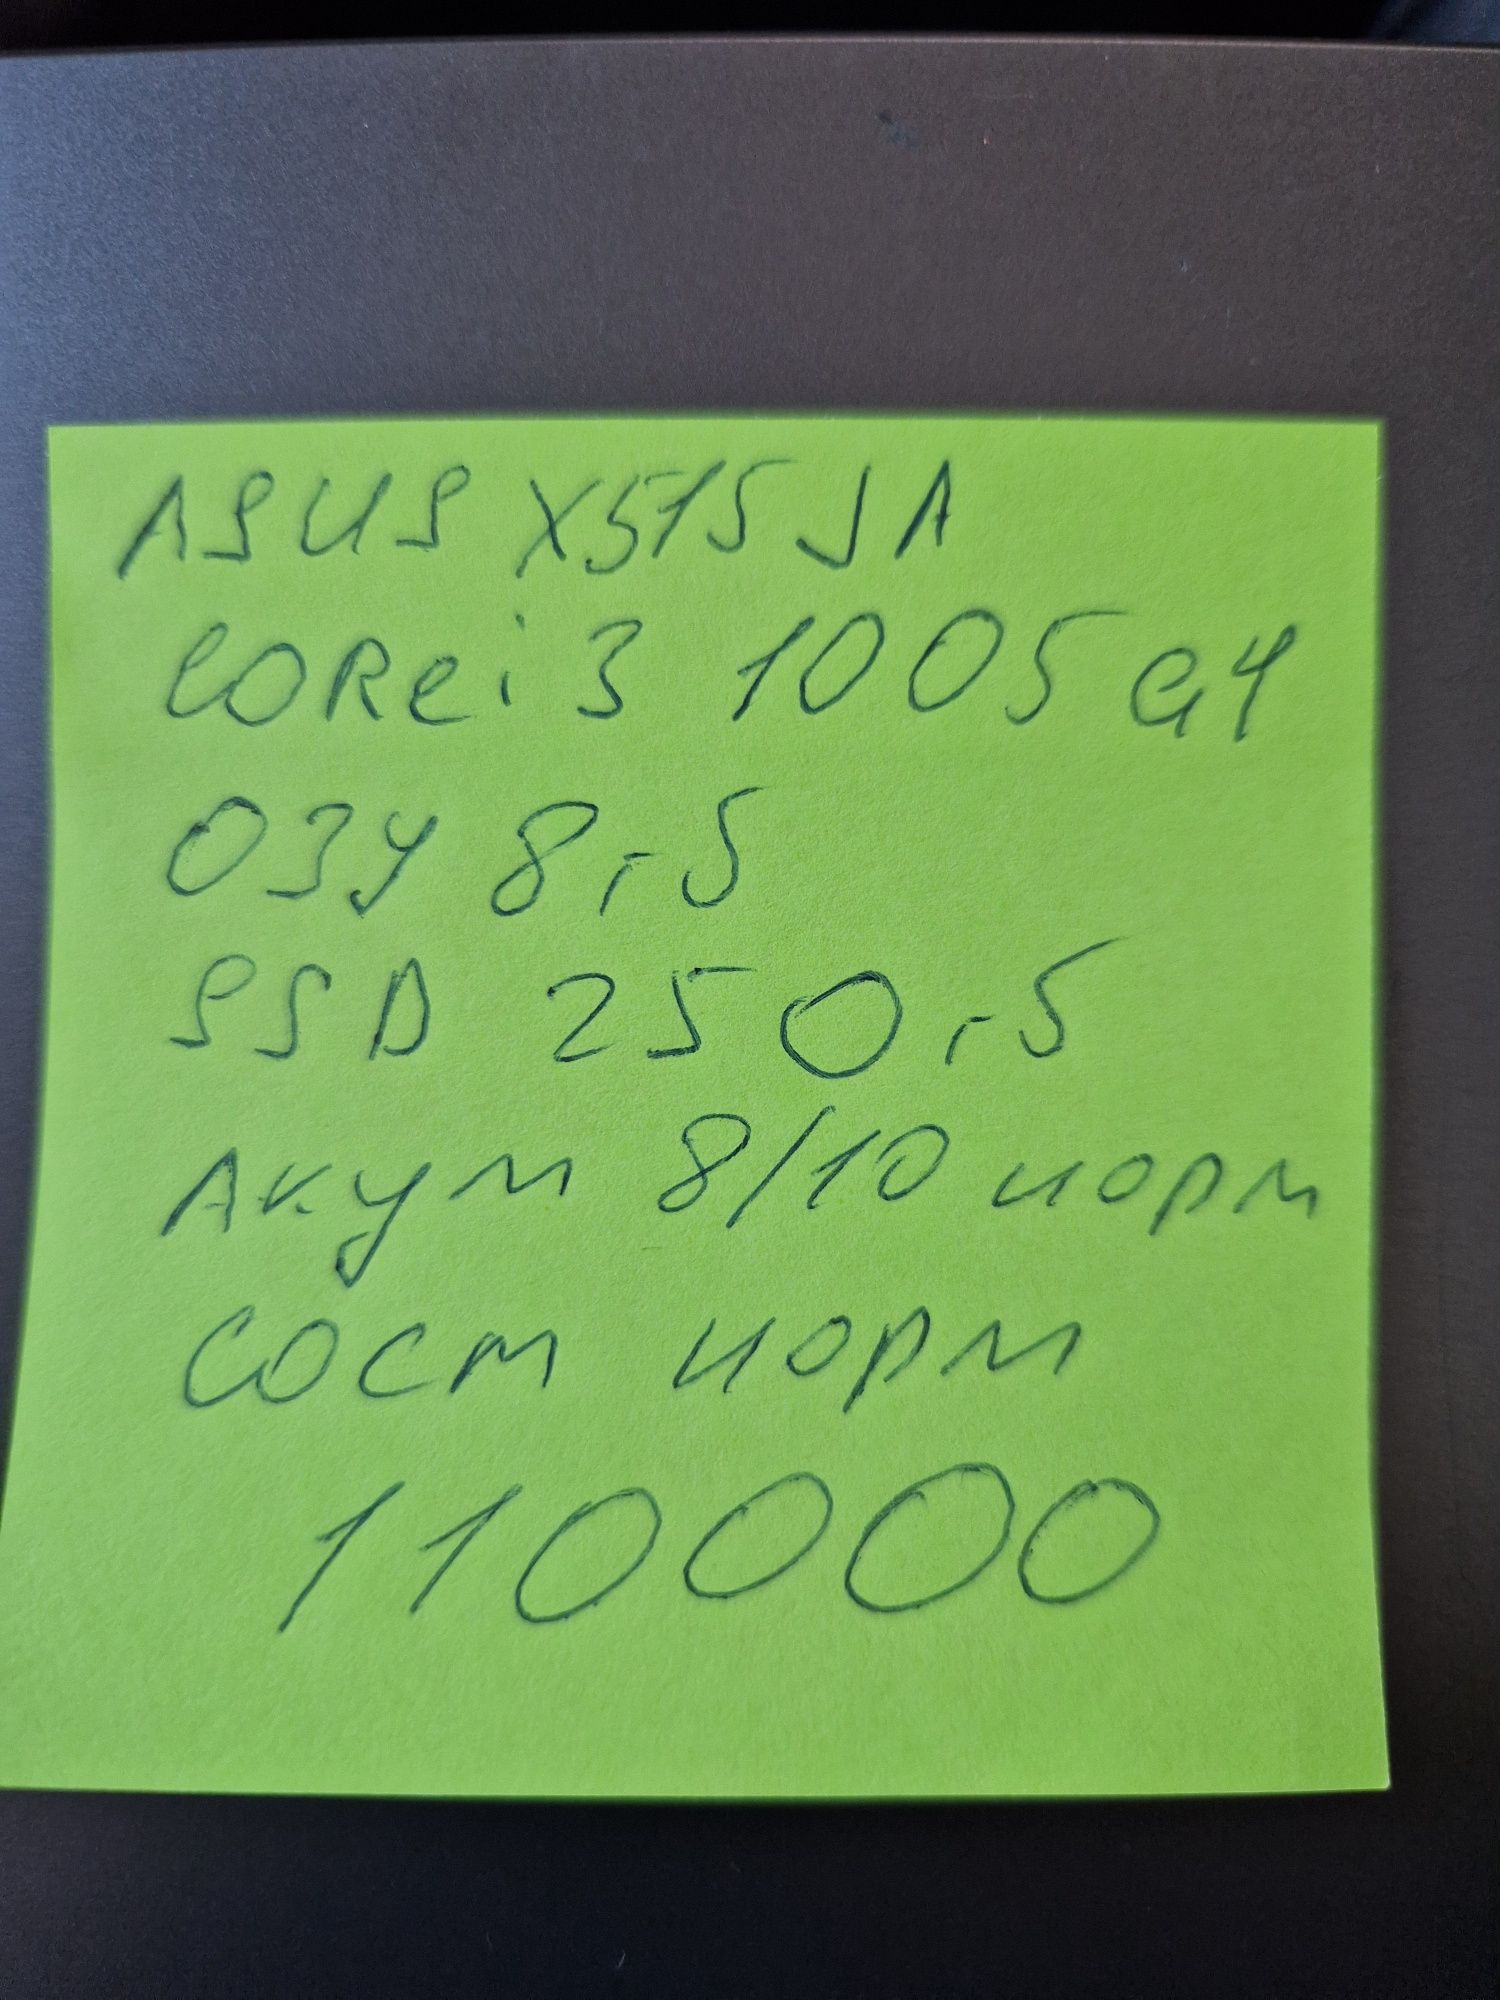 ASUS X515JA
COREi3 1005G4
ОЗУ 8гБ
SSD 250гБ
Акум 8/10 норм
сост норм
110000